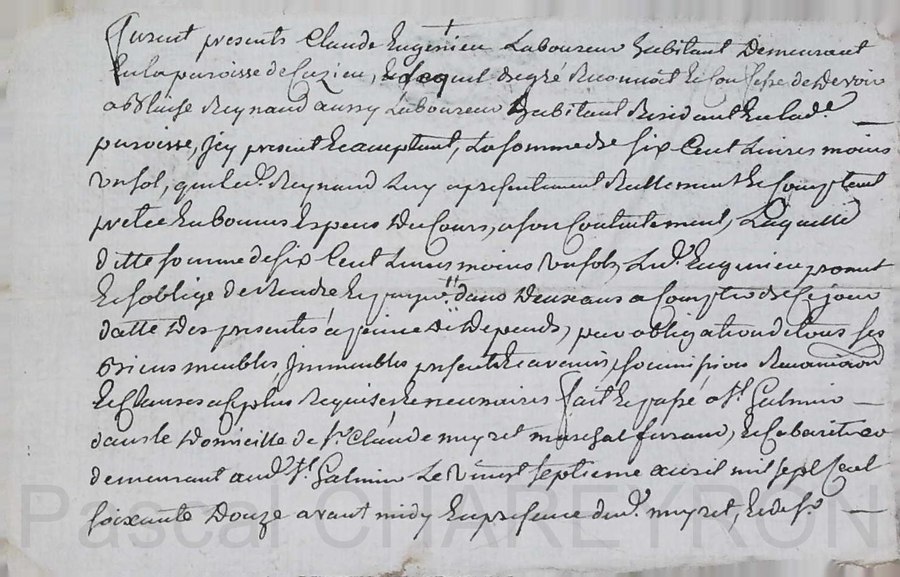 furent presents Claude Eugenieu Laboureur habitant Demeurant
En la paroisse de Cuzieu, Lequel de gré Reconnoit Et Confesse de Devoir
a Blaise Reynaud aussy Laboureur habitant Residant En lad.e
paroisse, Jcy present Et acceptant, La somme de six Cent Livres moins
Un sol, que led.t Reynaud Luy a presentement Réellement Et Comptant
preté En bonnes Especes Du Cours, a son Contentement, Laquelle
ditte somme de six Cent Livres moins Un sol, Led.t Eugenieu promet
Et s'oblige de Rendre Et payer dans Deux ans a Compter de Ce jour
datte Des presentes a peine De Depends, par obligation de tous ses
Biens meubles Jmmeubles presents Et avenirs, soumissions Renonciaons
Et Clauses a Ce plus Requises Et necessaires fait Et passé a St. Galmier
dans le Domicille de Sr. Claude muzet marechal ferrand, Et Cabaretier
demeurant aud.t St. Galmier Le Vingt septieme avril mil sept Cent
soixante Douze avant midy En presence dud.t muzet, Et de Sr.
Pascal CHAREYRON